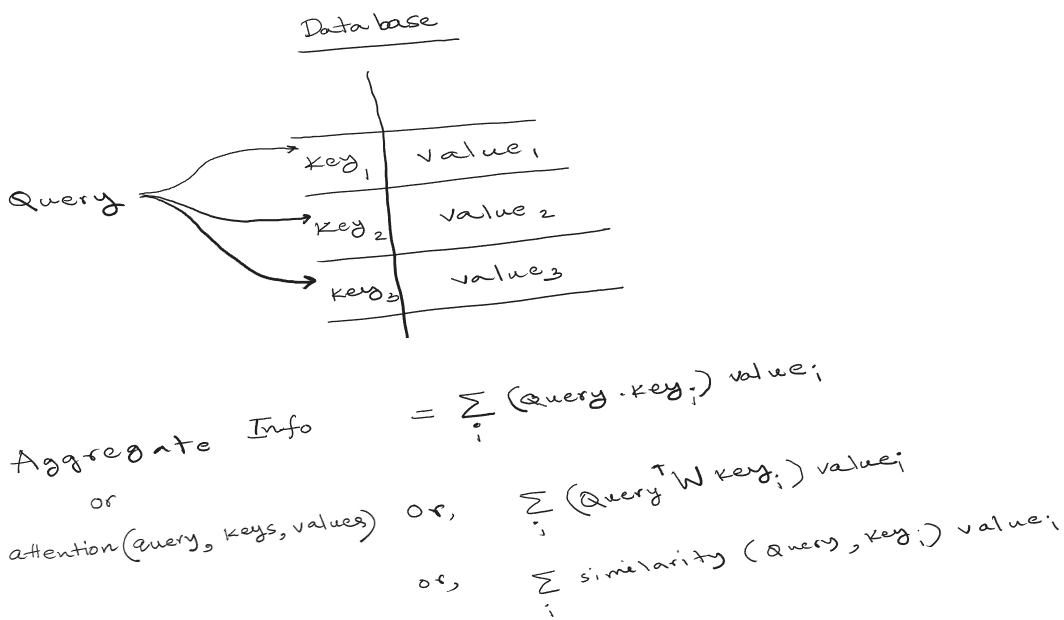 Database
key₁ value₁
Query
key₂ value₂
key₃ value₃
Aggregate Info = Σᵢ (Query . key ᵢ) valueᵢ
or
attention(query, keys, values) or, Σᵢ (Queryᵀ W keyᵢ) valueᵢ
or, Σᵢ similarity (Query, keyᵢ) valueᵢ